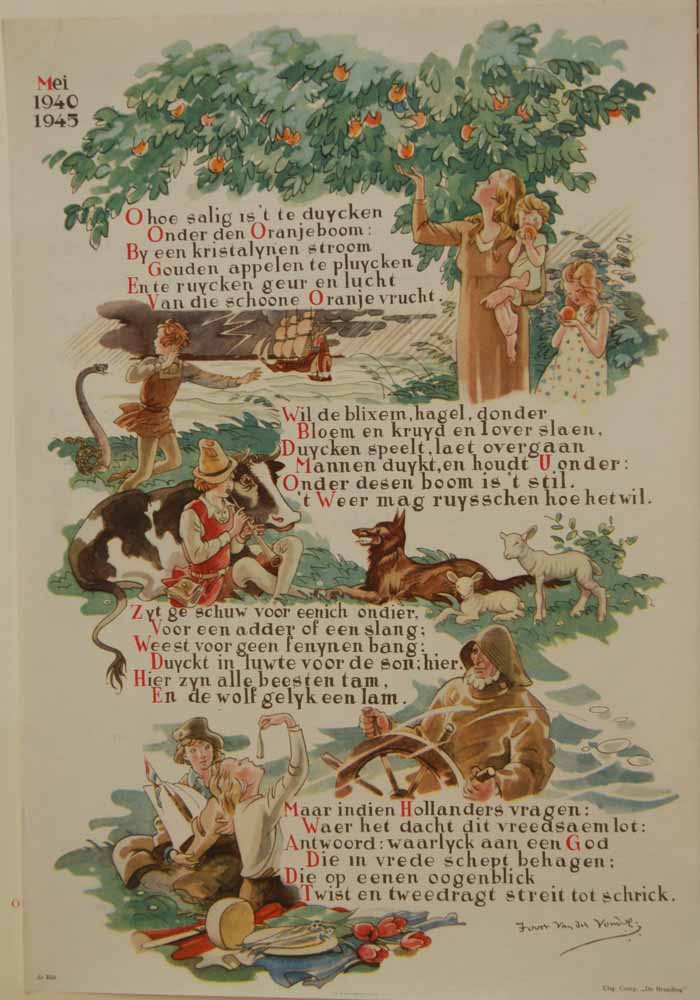 Mei
1940
1945
O hoe salig is't te duycken
Onder den Oranjeboom:
By een kristalynen stroom
Gouden appelen te pluycken
En te ruycken geur en lucht
Van die schoone Oranje vrucht.
Wil de blixem, hagel, donder
Bloem en kruyd en lover slaen,
Duycken speelt, laet overgaan
Mannen duykt, en houdt U onder:
Onder desen boom is 't stil.
't Weer mag ruysschen hoe het wil.
Zyt ge schuw voor eenich ondier,
Voor een adder of een slang;
Weest voor geen fenynen bang:
Duyckt in luwte voor de son; hier
Hier zyn alle beesten tam,
En de wolf gelyk een lam.
Maar indien Hollanders vragen:
Waer het dacht dit vreedsaem lot:
Antwoord: waarlyck aan een God
Die in vrede schept behagen:
Die op eenen oogenblick
Twist en tweedragt streit tot schrick.
Joost van den Vondel.
Uitg. Comp. „De Branding"